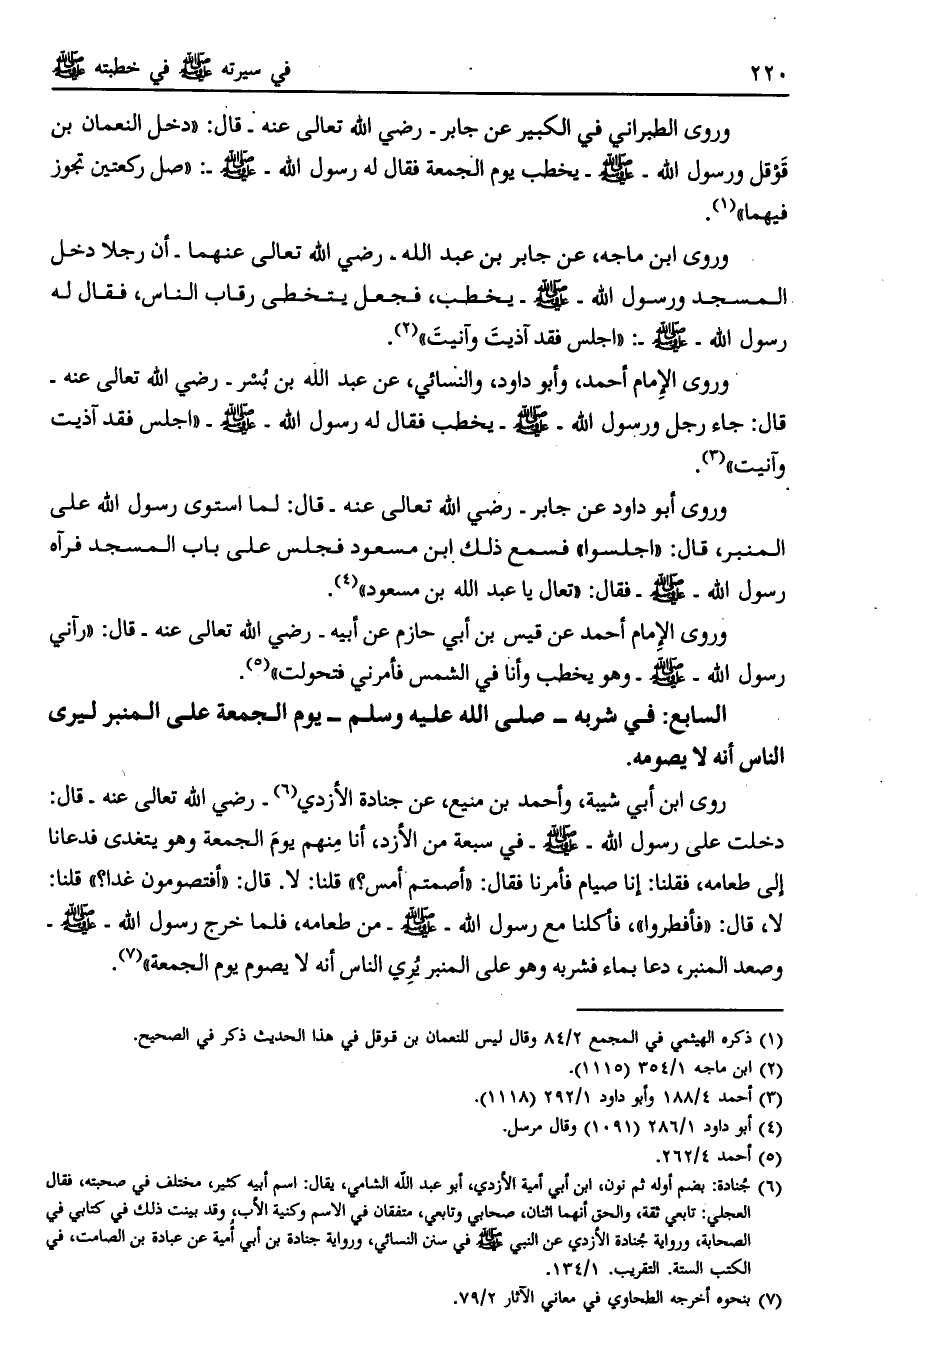 ٢٢٠ في سيرته ﷺ في خطبته ﷺ
وروى الطبراني في الكبير عن جابر ـ رضي الله تعالى عنه ـ قال: «دخل النعمان بن
قَوْقل ورسول الله ـ ﷺ ـ يخطب يوم الجمعة فقال له رسول الله ـ ﷺ ـ: «صل ركعتين تجوز
فيهما»(١).
وروى ابن ماجه، عن جابر بن عبد الله ـ رضي الله تعالى عنهما ـ أن رجلا دخل
المسجد ورسول الله ـ ﷺ ـ يخطب، فجعل يتخطى رقاب الناس، فقال له
رسول الله ـ ﷺ ـ: «اجلس فقد آذيتَ وآنيتَ»(٢).
وروى الإِمام أحمد، وأبو داود، والنسائي، عن عبد الله بن بُسْر ـ رضي الله تعالى عنه ـ
قال: جاء رجل ورسول الله ـ ﷺ ـ يخطب فقال له رسول الله ـ ﷺ ـ «اجلس فقد آذيت
وآنيت»(٣).
وروى أبو داود عن جابر ـ رضي الله تعالى عنه ـ قال: لما استوى رسول الله على
المنبر، قال: «اجلسوا» فسمع ذلك ابن مسعود فجلس على باب المسجد فرآه
رسول الله ـ ﷺ ـ فقال: «تعال يا عبد الله بن مسعود»(٤).
وروى الإِمام أحمد عن قيس بن أبي حازم عن أبيه ـ رضي الله تعالى عنه ـ قال: «رآني
رسول الله ـ ﷺ ـ وهو يخطب وأنا في الشمس فأمرني فتحولت»(٥).
السابع: في شربه ـ صلى الله عليه وسلم ـ يوم الجمعة على المنبر ليرى
الناس أنه لا يصومه.
روى ابن أبي شيبة، وأحمد بن منيع، عن جنادة الأزدي(٦) ـ رضي الله تعالى عنه ـ قال:
دخلت على رسول الله ـ ﷺ ـ في سبعة من الأزد، أنا مِنهم يومَ الجمعة وهو يتغدى فدعانا
إلى طعامه، فقلنا: إنا صيام فأمرنا فقال: «أصمتم أمس؟» قلنا: لا. قال: «أفتصومون غدا؟» قلنا:
لا، قال: «فأفطروا»، فأكلنا مع رسول الله ـ ﷺ ـ من طعامه، فلما خرج رسول الله ـ ﷺ ـ
وصعد المنبر، دعا بماء فشربه وهو على المنبر يُرِي الناس أنه لا يصوم يوم الجمعة»(٧).
(١) ذكره الهيثمي في المجمع ٨٤/٢ وقال ليس للنعمان بن قوقل في هذا الحديث ذكر في الصحيح.
(٢) ابن ماجه ٣٥٤/١ (١١١٥).
(٣) أحمد ١٨٨/٤ وأبو داود ٢٩٢/١ (١١١٨).
(٤) أبو داود ٢٨٦/١ (١٠٩١) وقال مرسل.
(٥) أحمد ٢٦٢/٤.
(٦) جُنادة: بضم أوله ثم نون، ابن أبي أمية الأزدي، أبو عبد اللّه الشامي، يقال: اسم أبيه كثير، مختلف في صحبته، فقال
العجلي: تابعي ثقة، والحق أنهما اثنان، صحابي وتابعي، متفقان في الاسم وكنية الأب، وقد بينت ذلك في كتابي في
الصحابة، ورواية جُنادة الأزدي عن النبي ﷺ في سنن النسائي، ورواية جنادة بن أبي أُمية عن عبادة بن الصامت، في
الكتب الستة. التقريب. ١٣٤/١.
(٧) بنحوه أخرجه الطحاوي في معاني الآثار ٧٩/٢.